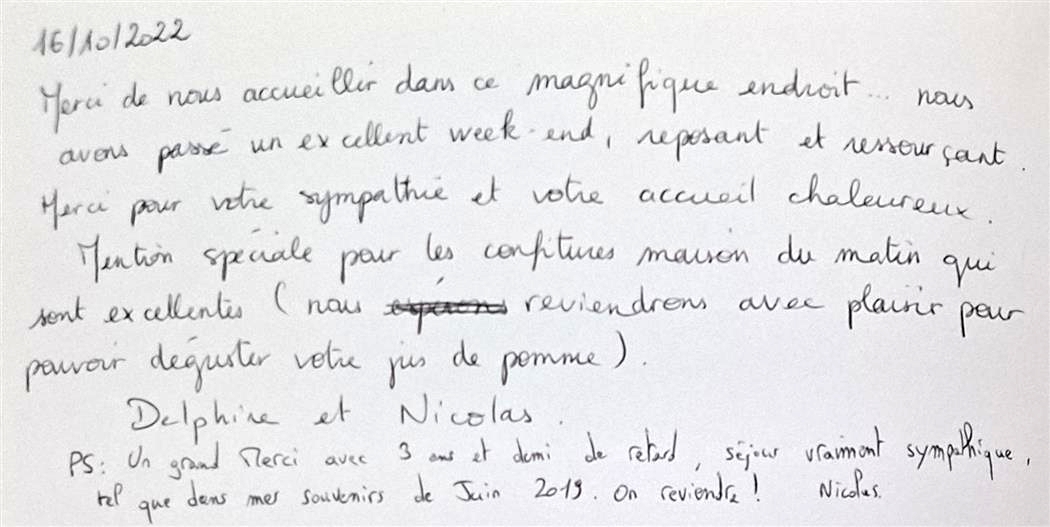 16/10/2022
Merci de nous accueillir dans ce magnifique endroit... nous
avons passé un excellent week-end, reposant et ressourçant.
Merci pour votre sympathie et votre accueil chaleureux.
Mention spéciale pour les confitures maison du matin qui
sont excellentes (nous espérons reviendrons avec plaisir pour
pouvoir déguster votre jus de pomme).
Delphine et Nicolas.
PS: Un grand Merci avec 3 ans et demi de retard, séjour vraiment sympathique,
tel que dans mes souvenirs de Juin 2019. On reviendra! Nicolas.